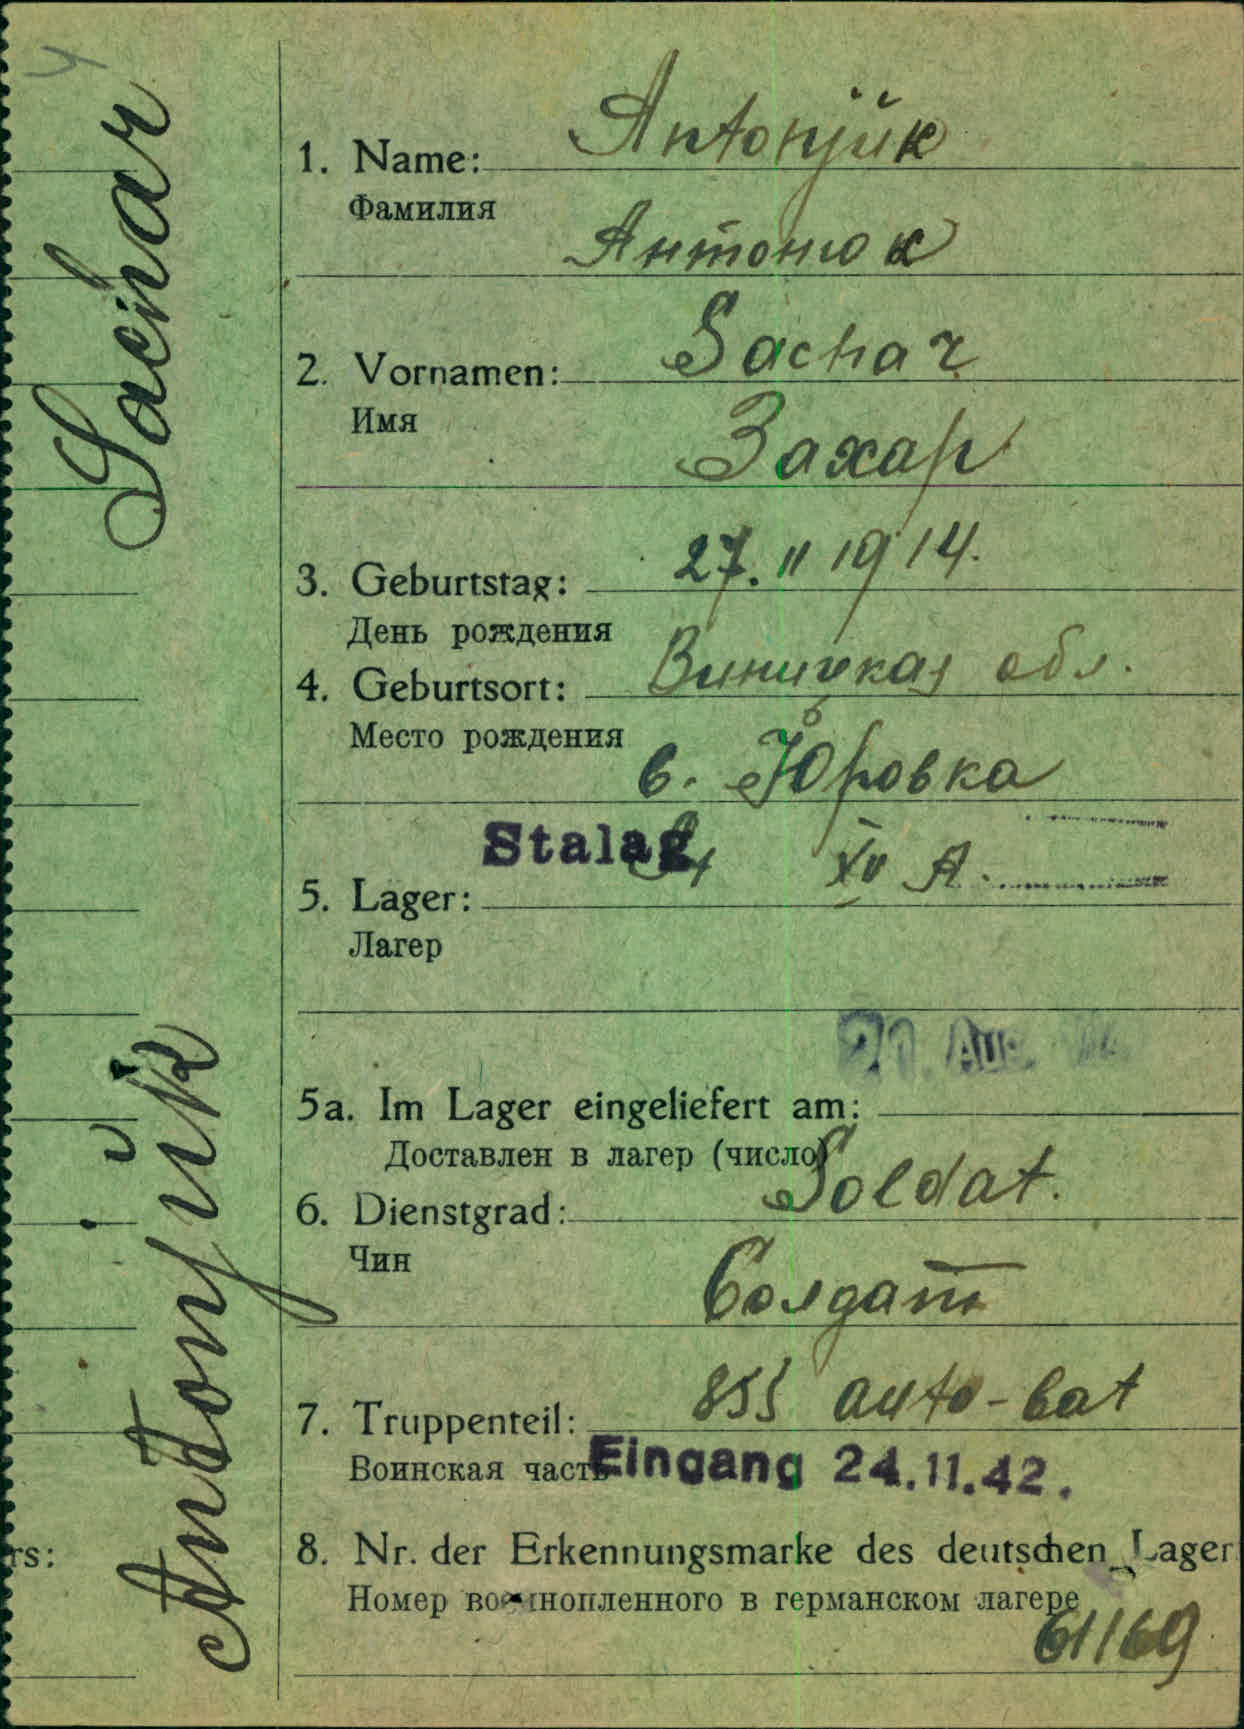 Antonjuk Sachar
1. Name: Antonjŭk
Фамилия
Антонюк
2. Vornamen: Sachar
Имя
Захар
3. Geburtstag: 27. II 1914.
День рождения
4. Geburtsort: Виницкая обл.
Место рождения
с. Юровка
Stalag XV A.
5. Lager:
Лагер
21. Aug.
5a. Im Lager eingeliefert am:
Доставлен в лагер (число)
6. Dienstgrad: Soldat.
Чин
Солдат
7. Truppenteil: 855 auto-bat
Воинская часть Eingang 24.11.42.
8. Nr. der Erkennungsmarke des deutschen Lager
rs:
Номер военнопленного в германском лагере
61169